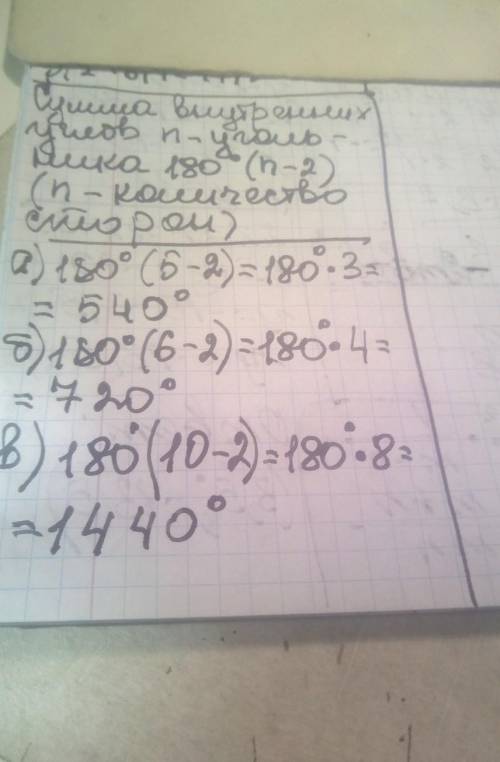 Сумма внутренних
углов n-уголь-
ника 180°(n-2)
(n - количество
сторон)
а) 180°(5-2)=180°·3=
= 540°
б) 180°(6-2)=180°·4=
= 720°
в) 180°(10-2)=180°·8=
=1440°